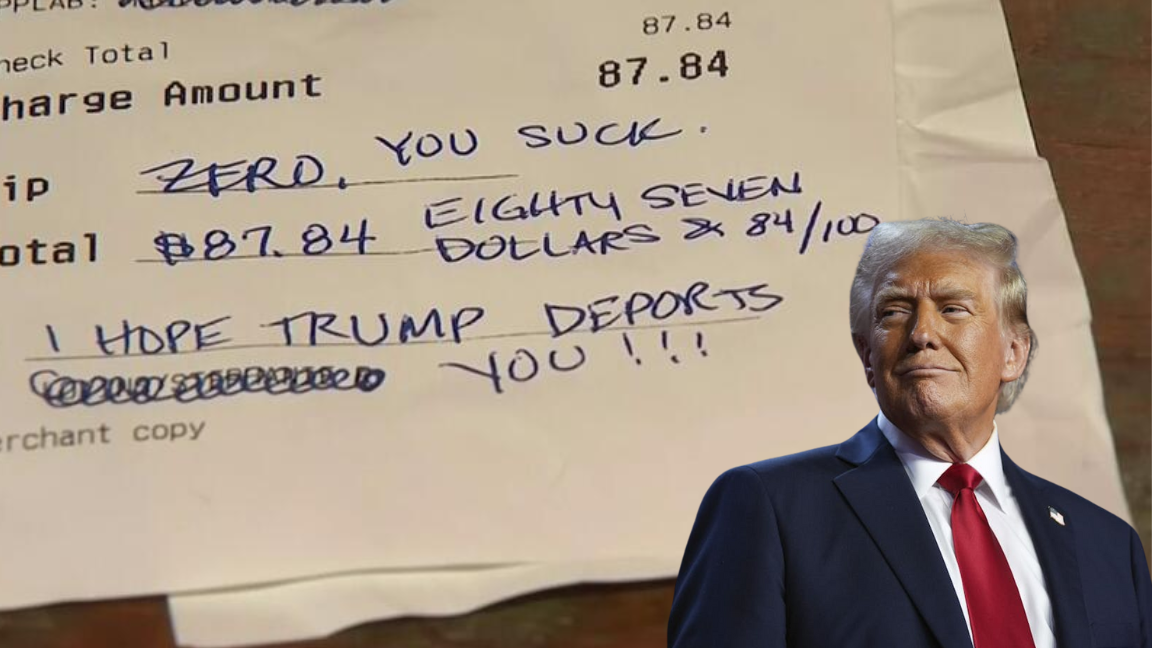 87.84
heck Total
harge Amount 87.84
ip ZERO. YOU SUCK.
otal $87.84 EIGHTY SEVEN
DOLLARS & 84/100
I HOPE TRUMP DEPORTS
YOU!!!
erchant copy